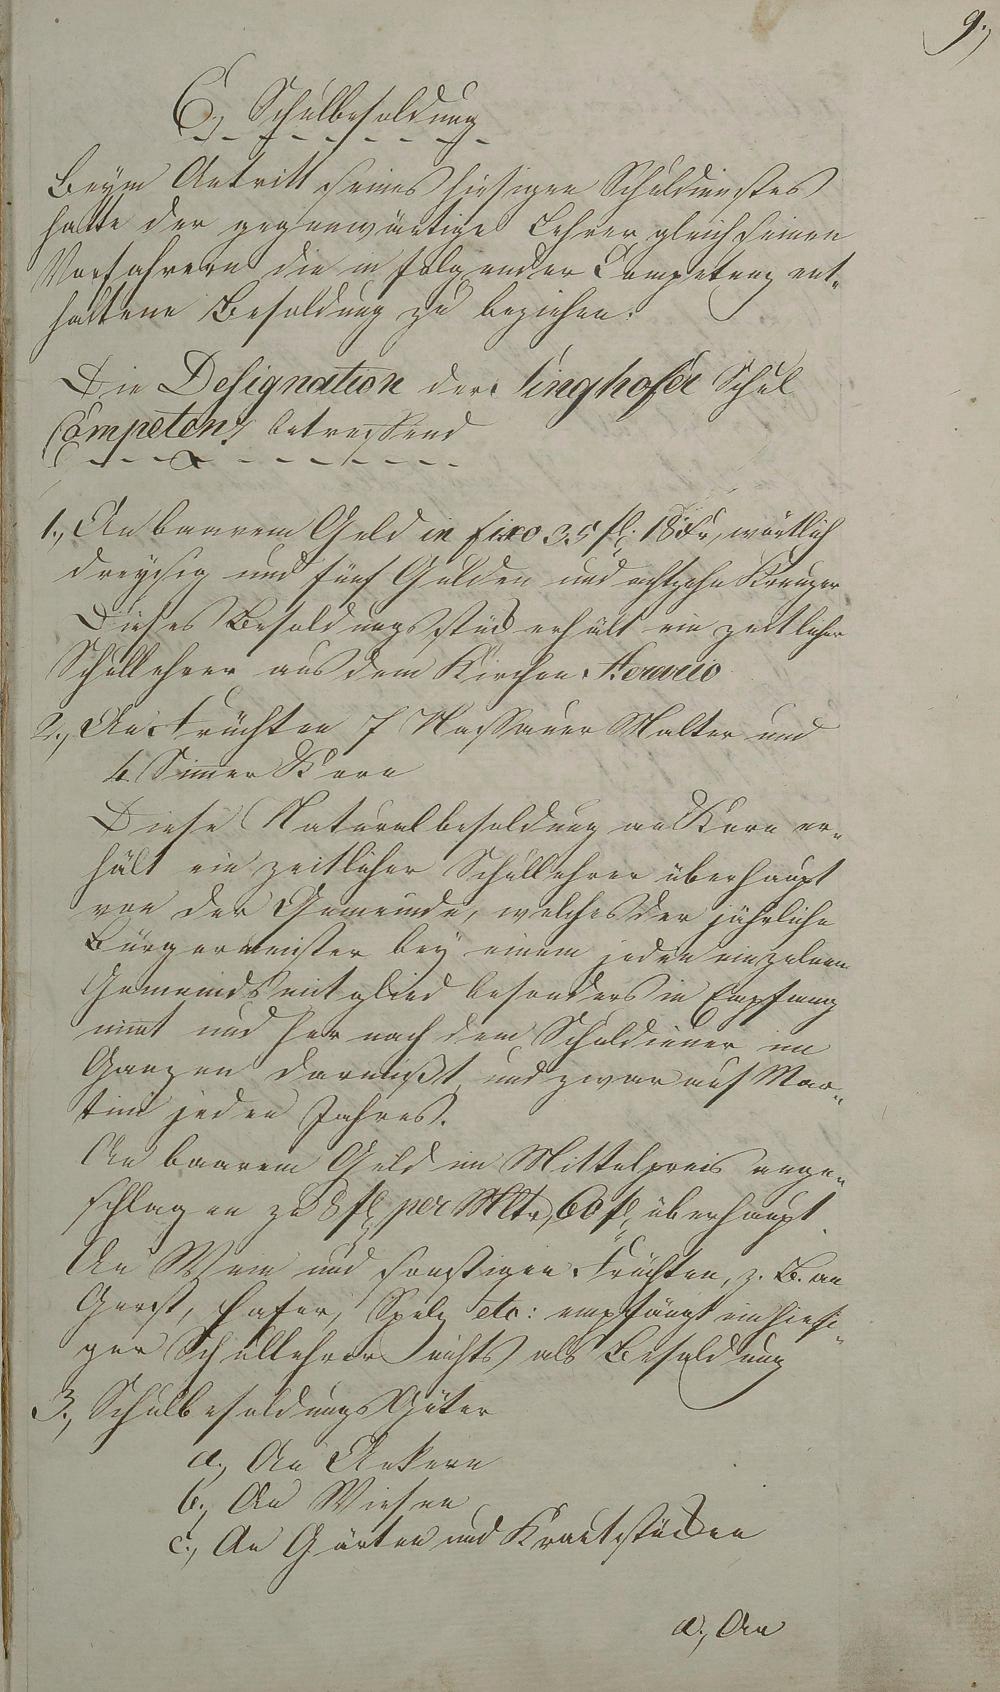 9.,
C., Schulbesoldung
Beym Antritt seines hiesigen Schuldienstes
hatte der gegenwärtige Lehrer gleich seinen
Vorfahrern die in folgender Competenz ent-
haltene Besoldung zu beziehen.
Die Designation der Singhofer Schul
Competenz betreffend
1., An baarem Geld in fixo 35 fl: 18 Kr, wörtlich
dreyßig und fünf Gulden und achtzehn Kreuzer
Dieses Besoldungsstück erhält ein zeitlicher
Schullehrer aus dem Kirchen Aerario
2., An Früchten 7 Nassauer Malter und
4 Simmer Korn
Diese Naturalbesoldung an Korn er-
hält ein zeitlicher Schullehrer überhaupt
von der Gemeinde, welches der jährliche
Bürgermeister bey einem jeden einzelnen
Gemeindsmitglied besonders in Empfang
nimt und hernach dem Schuldiener im
Ganzen darmißt, und zwar auf Mar-
tini jeden Jahres.
An baarem Geld im Mittelpreis ange-
schlagen zu 8 fl per Mltr, 60 fl, überhaupt
An Wein und sonstigen Früchten, z. B. an
Gerst, Hafer, Spelz etc: empfängt ein hiesi-
ger Schullehrer nichts als Besoldung
3., Schulbesoldungs Güter
a., An Aekern
b., An Wiesen
c., An Gärten und Krautstücken
a., An